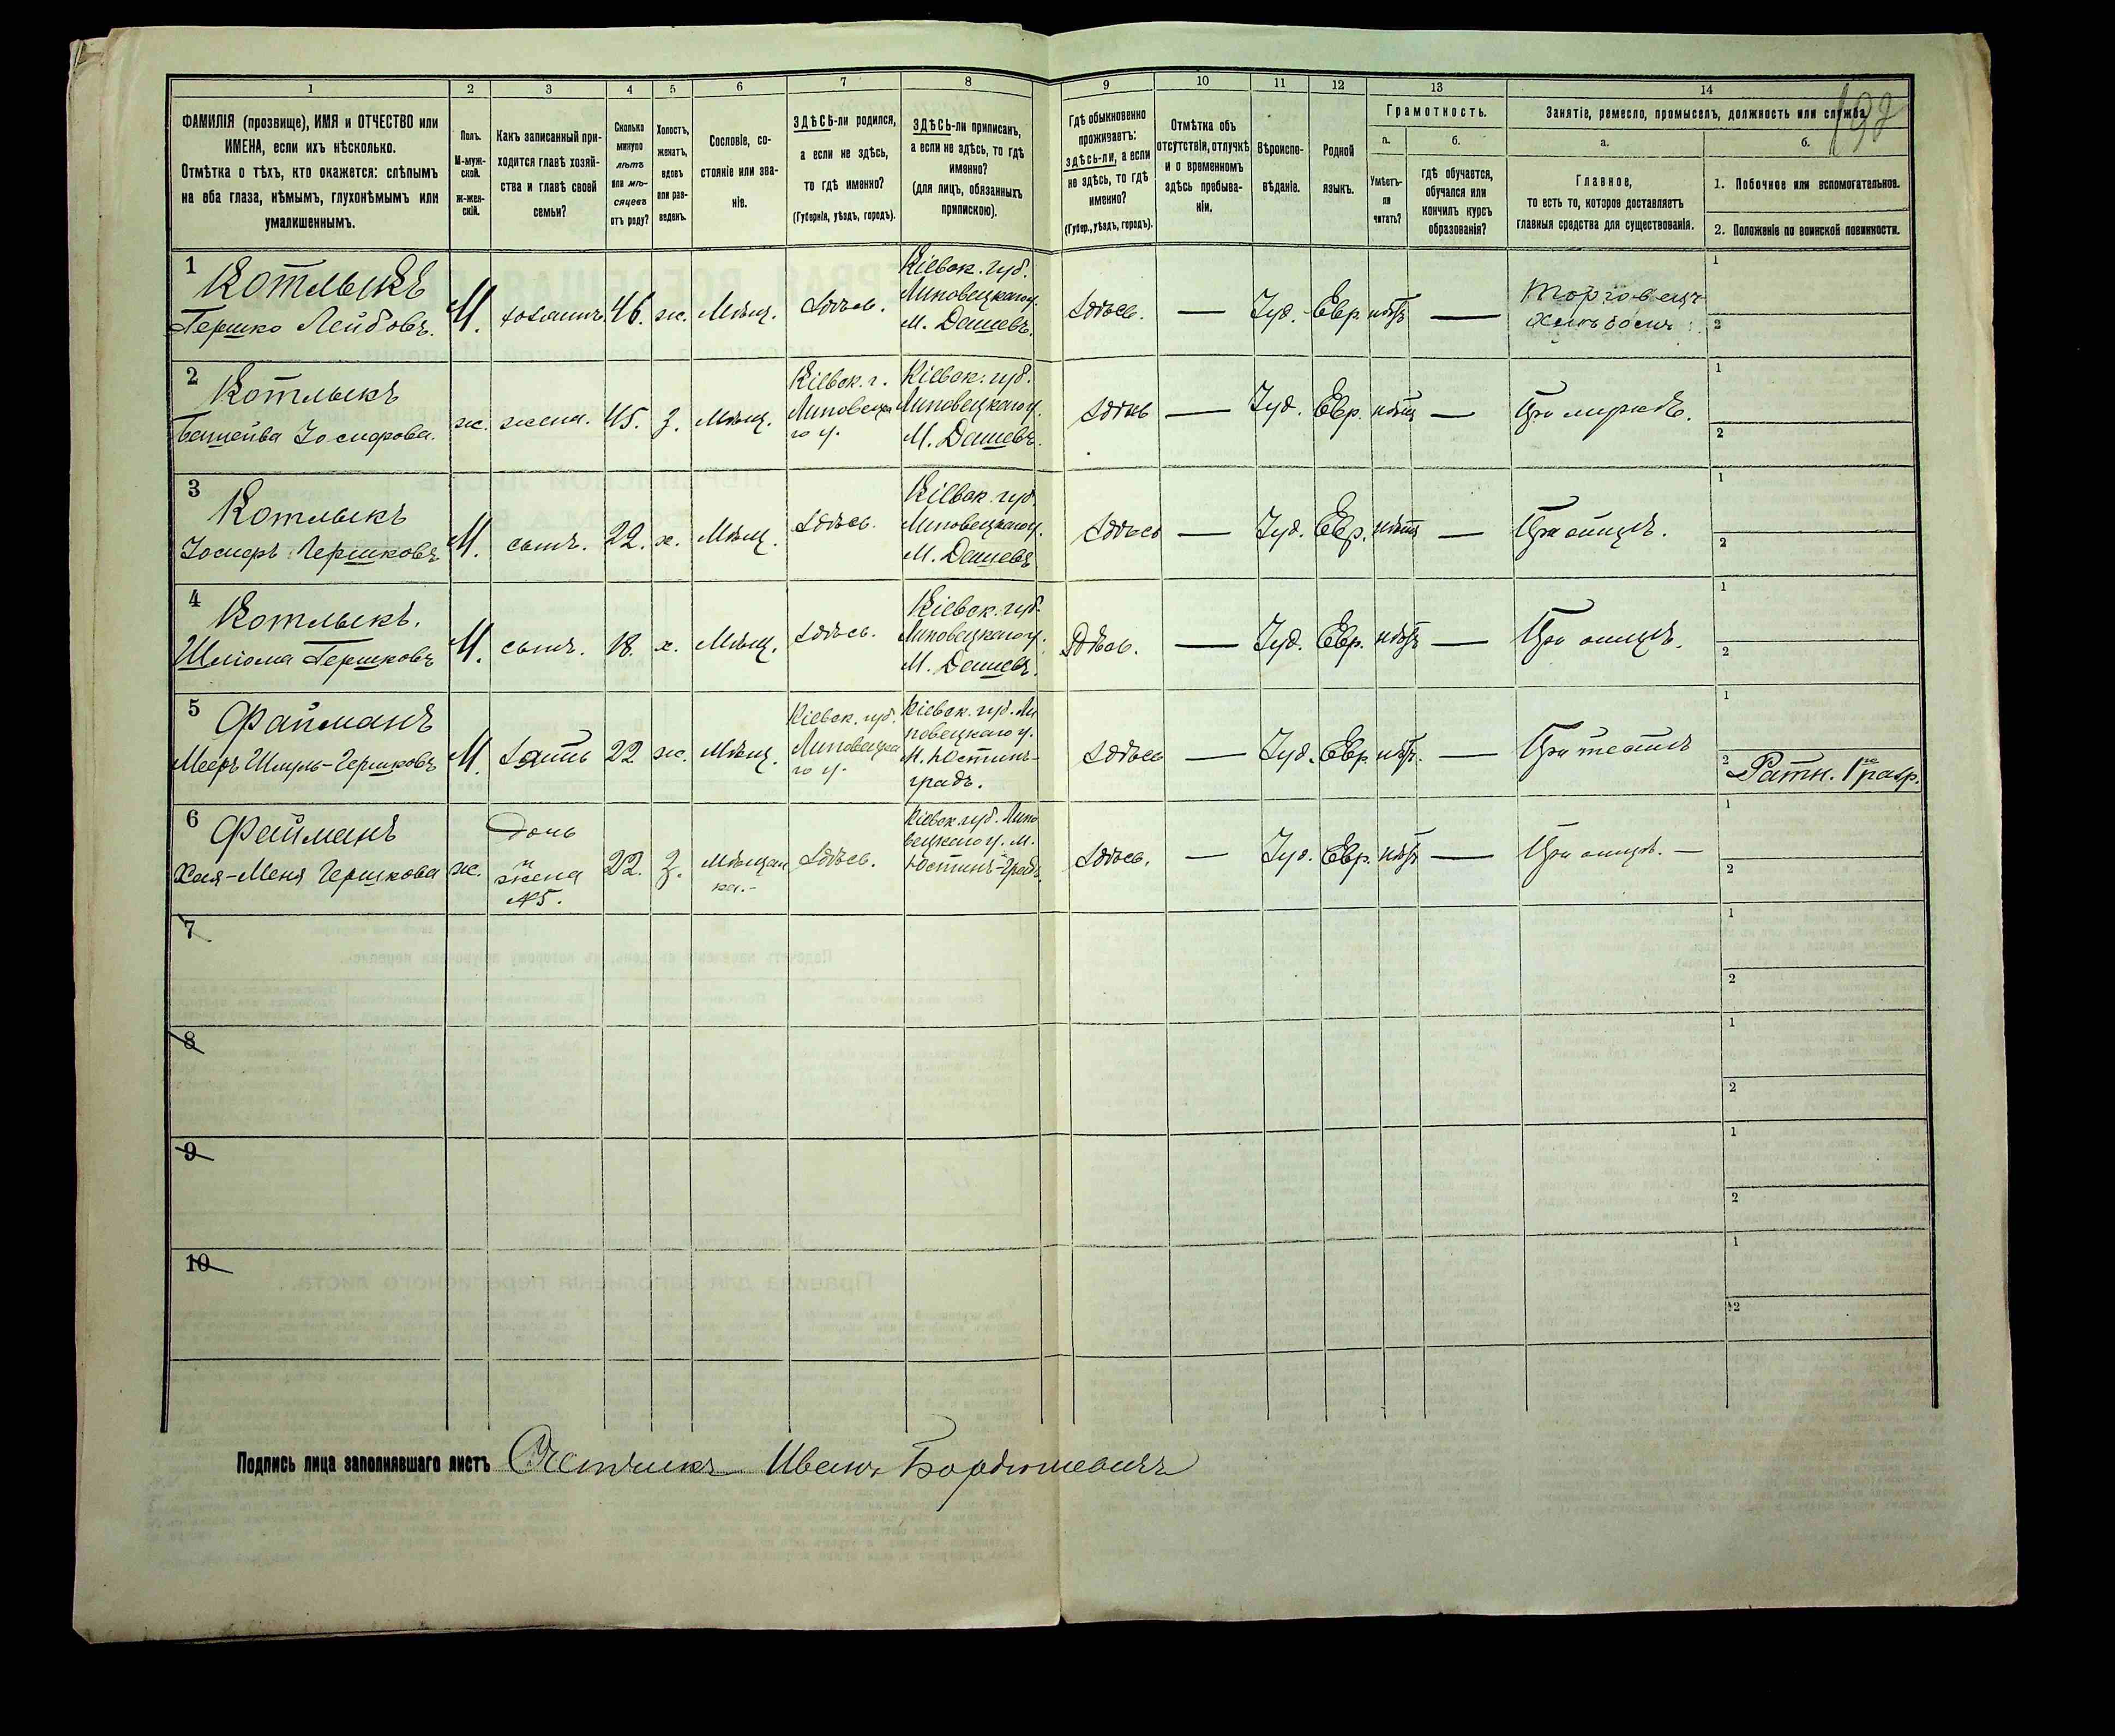 1 2 3 4 5 6 7 8 9 10 11 12 13 14
ФАМИЛІЯ (прозвище), ИМЯ и ОТЧЕСТВО или
ИМЕНА, если ихъ нѣсколько.
Отмѣтка о тѣхъ, кто окажется: слѣпымъ
на оба глаза, нѣмымъ, глухонѣмымъ или
умалишеннымъ.
Полъ.
М-муж-
ской.
ж-жен-
скій.
Какъ записанный при-
ходится главѣ хозяй-
ства и главѣ своей
семьи?
Сколько
минуло
лѣтъ
или мѣ-
сяцевъ
отъ роду?
Холостъ,
женатъ,
вдовъ
или раз-
веденъ.
Сословіе, со-
стояніе или зва-
ніе.
ЗДѢСЬ-ли родился,
а если не здѣсь,
то гдѣ именно?
(Губернія, уѣздъ, городъ).
ЗДѢСЬ-ли приписанъ,
а если не здѣсь, то гдѣ
именно?
(для лицъ, обязанныхъ
припискою).
Гдѣ обыкновенно
проживаетъ:
здѣсь-ли, а если
не здѣсь, то гдѣ
именно?
(Губер., уѣздъ, городъ).
Отмѣтка объ
отсутствіи, отлучкѣ
и о временномъ
здѣсь пребыва-
ніи.
Вѣроиспо-
вѣданіе.
Родной
языкъ.
Грамотность.
а.
Умѣетъ-
ли
читать?
б.
гдѣ обучается,
обучался или
кончилъ курсъ
образованія?
Занятіе, ремесло, промыселъ, должность или служба.
а.
Главное,
то есть то, которое доставляетъ
главныя средства для существованія.
б.
1. Побочное или вспомогательное.
2. Положеніе по воинской повинности.
1
Котлыкъ
Гершко Лейбовъ.
М.
хозяинъ
46.
ж.
Мѣщ.
Здѣсь.
Кіевск. губ.
Липовецкаго у.
М. Дашевъ.
Здѣсь.
—
Іуд.
Евр.
нѣтъ
—
Торговецъ
хлѣбомъ
1
2
2
Котлыкъ
Батшейва Іосифова.
ж.
жена.
45.
з.
Мѣщ.
Кіевск. г.
Липовецка
го у.
Кіевск. губ.
Липовецкаго у.
М. Дашевъ.
Здѣсь
—
Іуд.
Евр.
нѣтъ
—
При мужѣ.
1
2
3
Котлыкъ
Іосифъ Гершковъ
М.
сынъ.
22.
х.
Мѣщ.
Здѣсь.
Кіевск. губ.
Липовецкаго у.
М. Дашевъ
Здѣсь
—
Іуд.
Евр.
нѣтъ
—
При отцѣ.
1
2
4
Котлыкъ.
Шліома Гершковъ
М.
сынъ.
18.
х.
Мѣщ.
Здѣсь.
Кіевск. губ.
Липовецкаго у.
М. Дашевъ.
Здѣсь.
—
Іуд.
Евр.
нѣтъ
—
При отцѣ.
1
2
5
Файманъ
Мееръ Шмуль-Гершковъ
М.
Зять
22
ж.
Мѣщ.
Кіевск. губ.
Липовецка
го у.
Кіевск. губ. Ли
повецкаго у.
М. Юстинъ-
градъ.
Здѣсь
—
Іуд.
Евр
нѣтъ.
—
При тестѣ
1
2
Ратн. 1го разр.
6
Файманъ
Хая-Меня Гершкова
ж.
Дочь
и
жена
№5.
22.
з.
Мѣщан
ка.-
Здѣсь.
Кіевск. губ. Липо
вецкаго у. М.
Юстинъ-градъ.
Здѣсь.
—
Іуд.
Евр.
нѣтъ
—
При отцѣ. —
1
2
7
1
2
8
1
2
9
1
2
10
1
2
Подпись лица заполнявшаго листъ Счетчикъ Иванъ